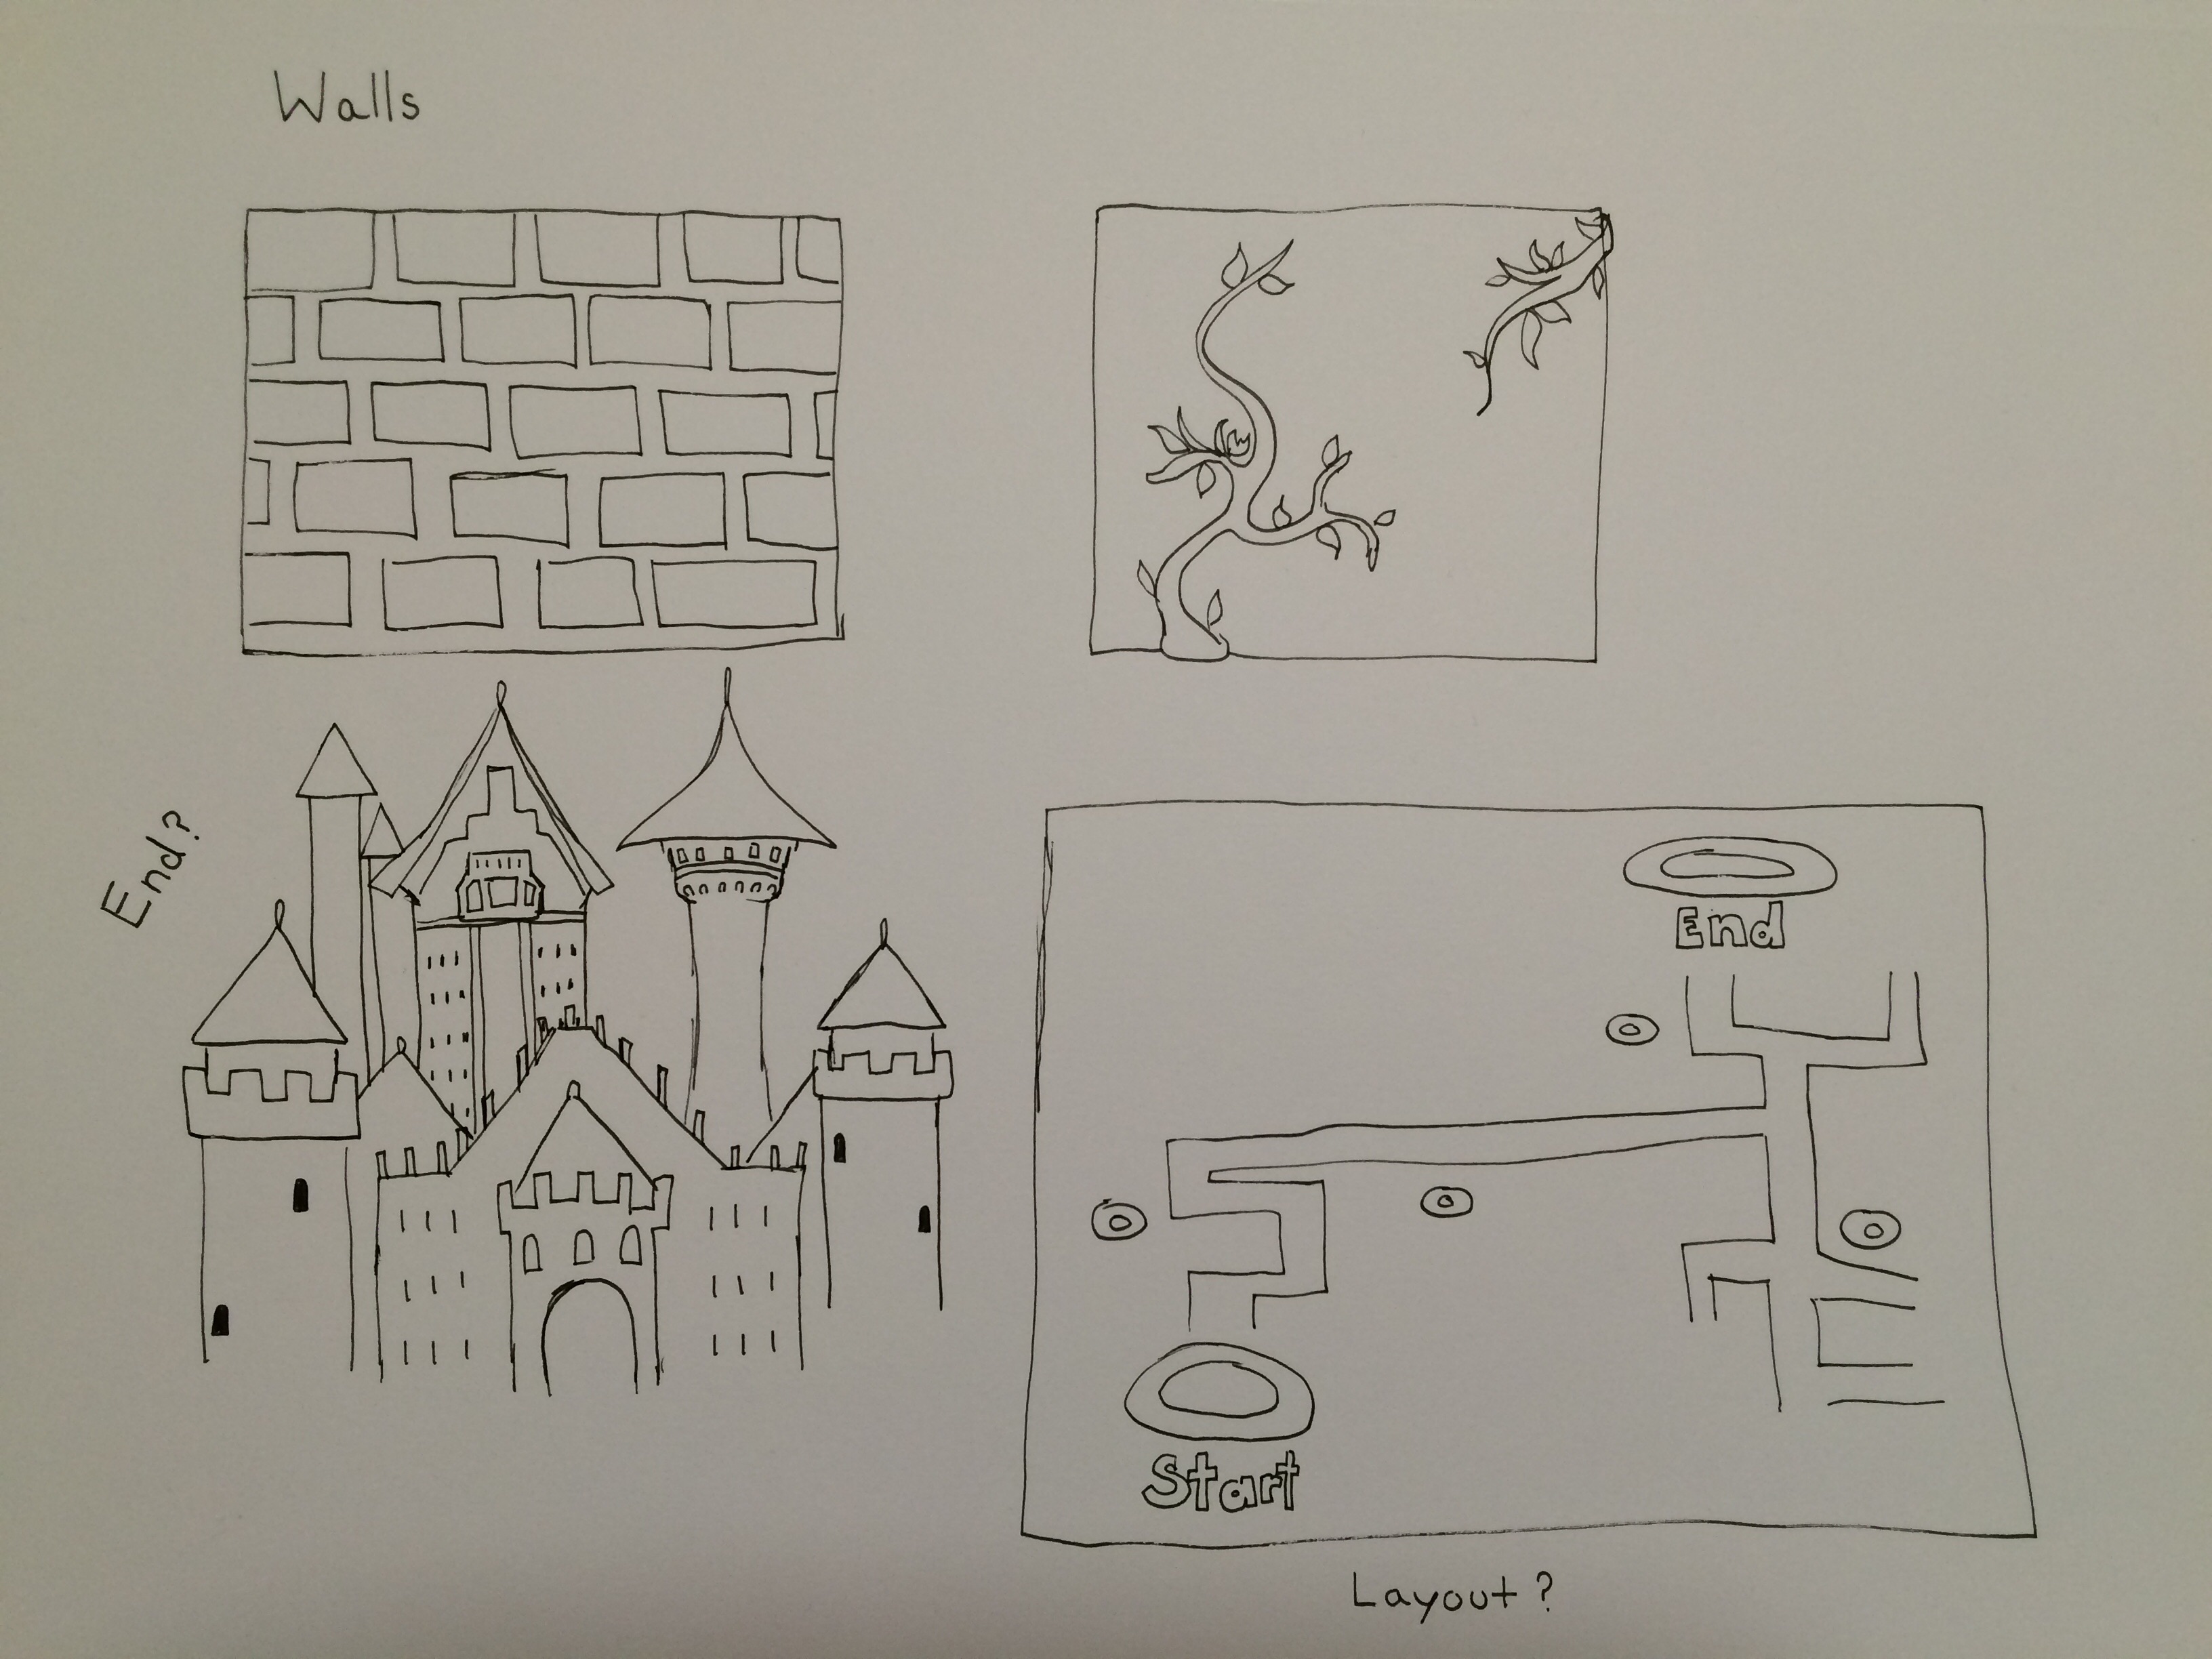 Walls
End?
End
Start
Layout?